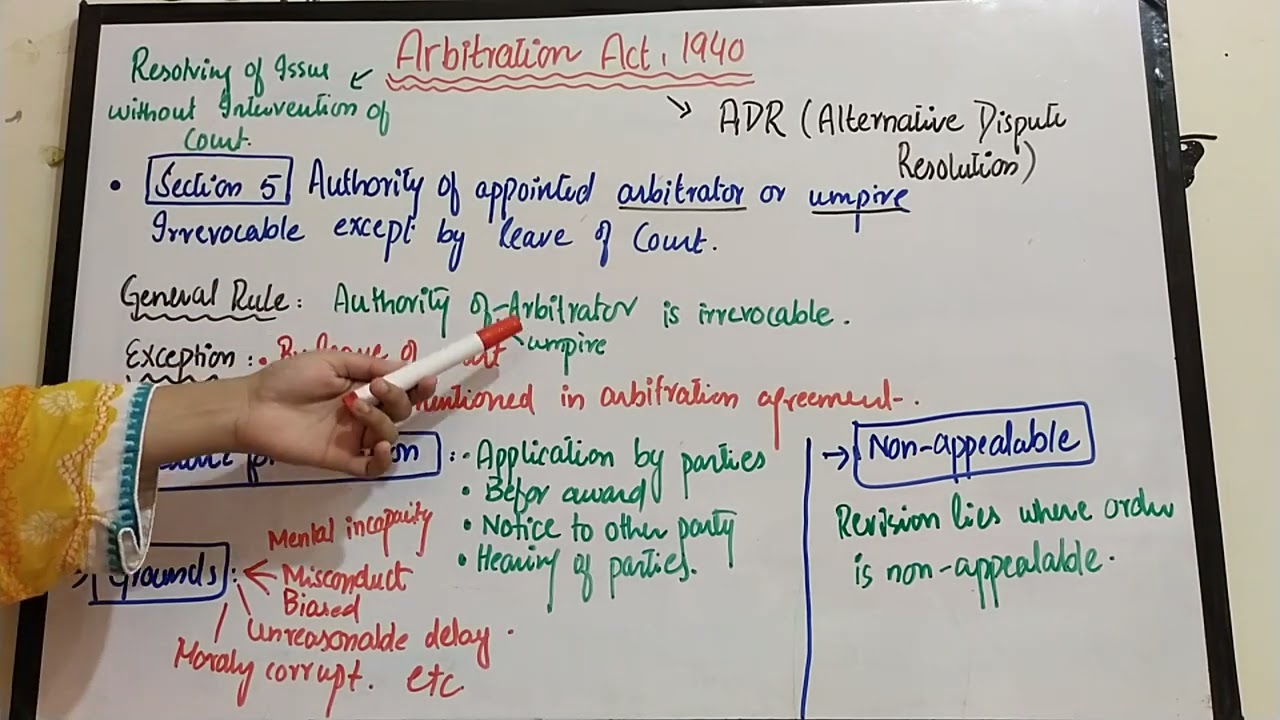 Arbitration Act, 1940
Resolving of Issue
without Intervention of
Court.
ADR (Alternative Dispute
Resolution)
• Section 5 Authority of appointed arbitrator or umpire
Irrevocable except by leave of Court.
General Rule: Authority of Arbitrator is irrevocable.
umpire
Exception: • By leave of
mentioned in arbitration agreement.
: • Application by parties
• Befor award
• Notice to other party
• Hearing of parties.
Grounds:
Mental incapacity
Misconduct
Biased
Unreasonable delay.
Moraly corrupt. etc
→ Non-appealable
Revision lies where order
is non-appealable.